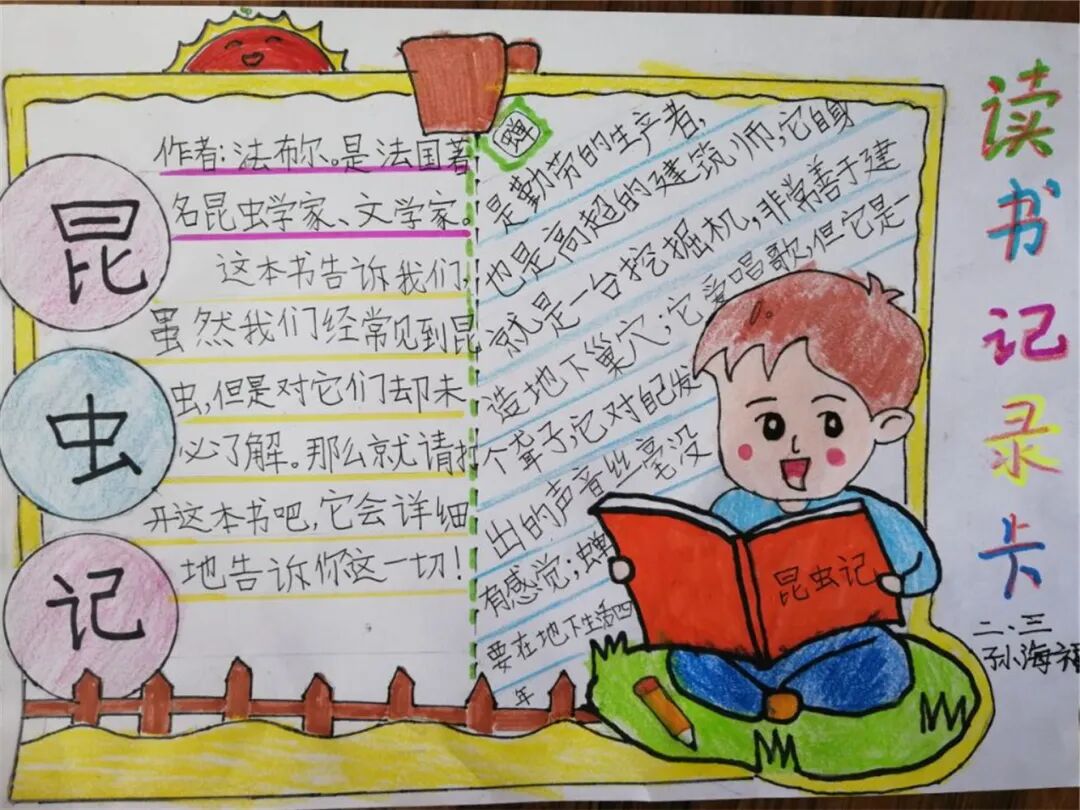 读书记录卡
二.三
孙海
昆虫记
作者:法布尔。是法国著
名昆虫学家、文学家。
这本书告诉我们,
虽然我们经常见到昆
虫,但是对它们却未
必了解。那么就请打
开这本书吧,它会详细
地告诉你这一切!
蝉
是勤劳的生产者,
也是高超的建筑师,它自身
就是一台挖掘机,非常善于建
造地下巢穴;它爱唱歌,但它是一
个聋子,它对自己发
出的声音丝毫没
有感觉;蝉
要在地下生活四
年
昆虫记